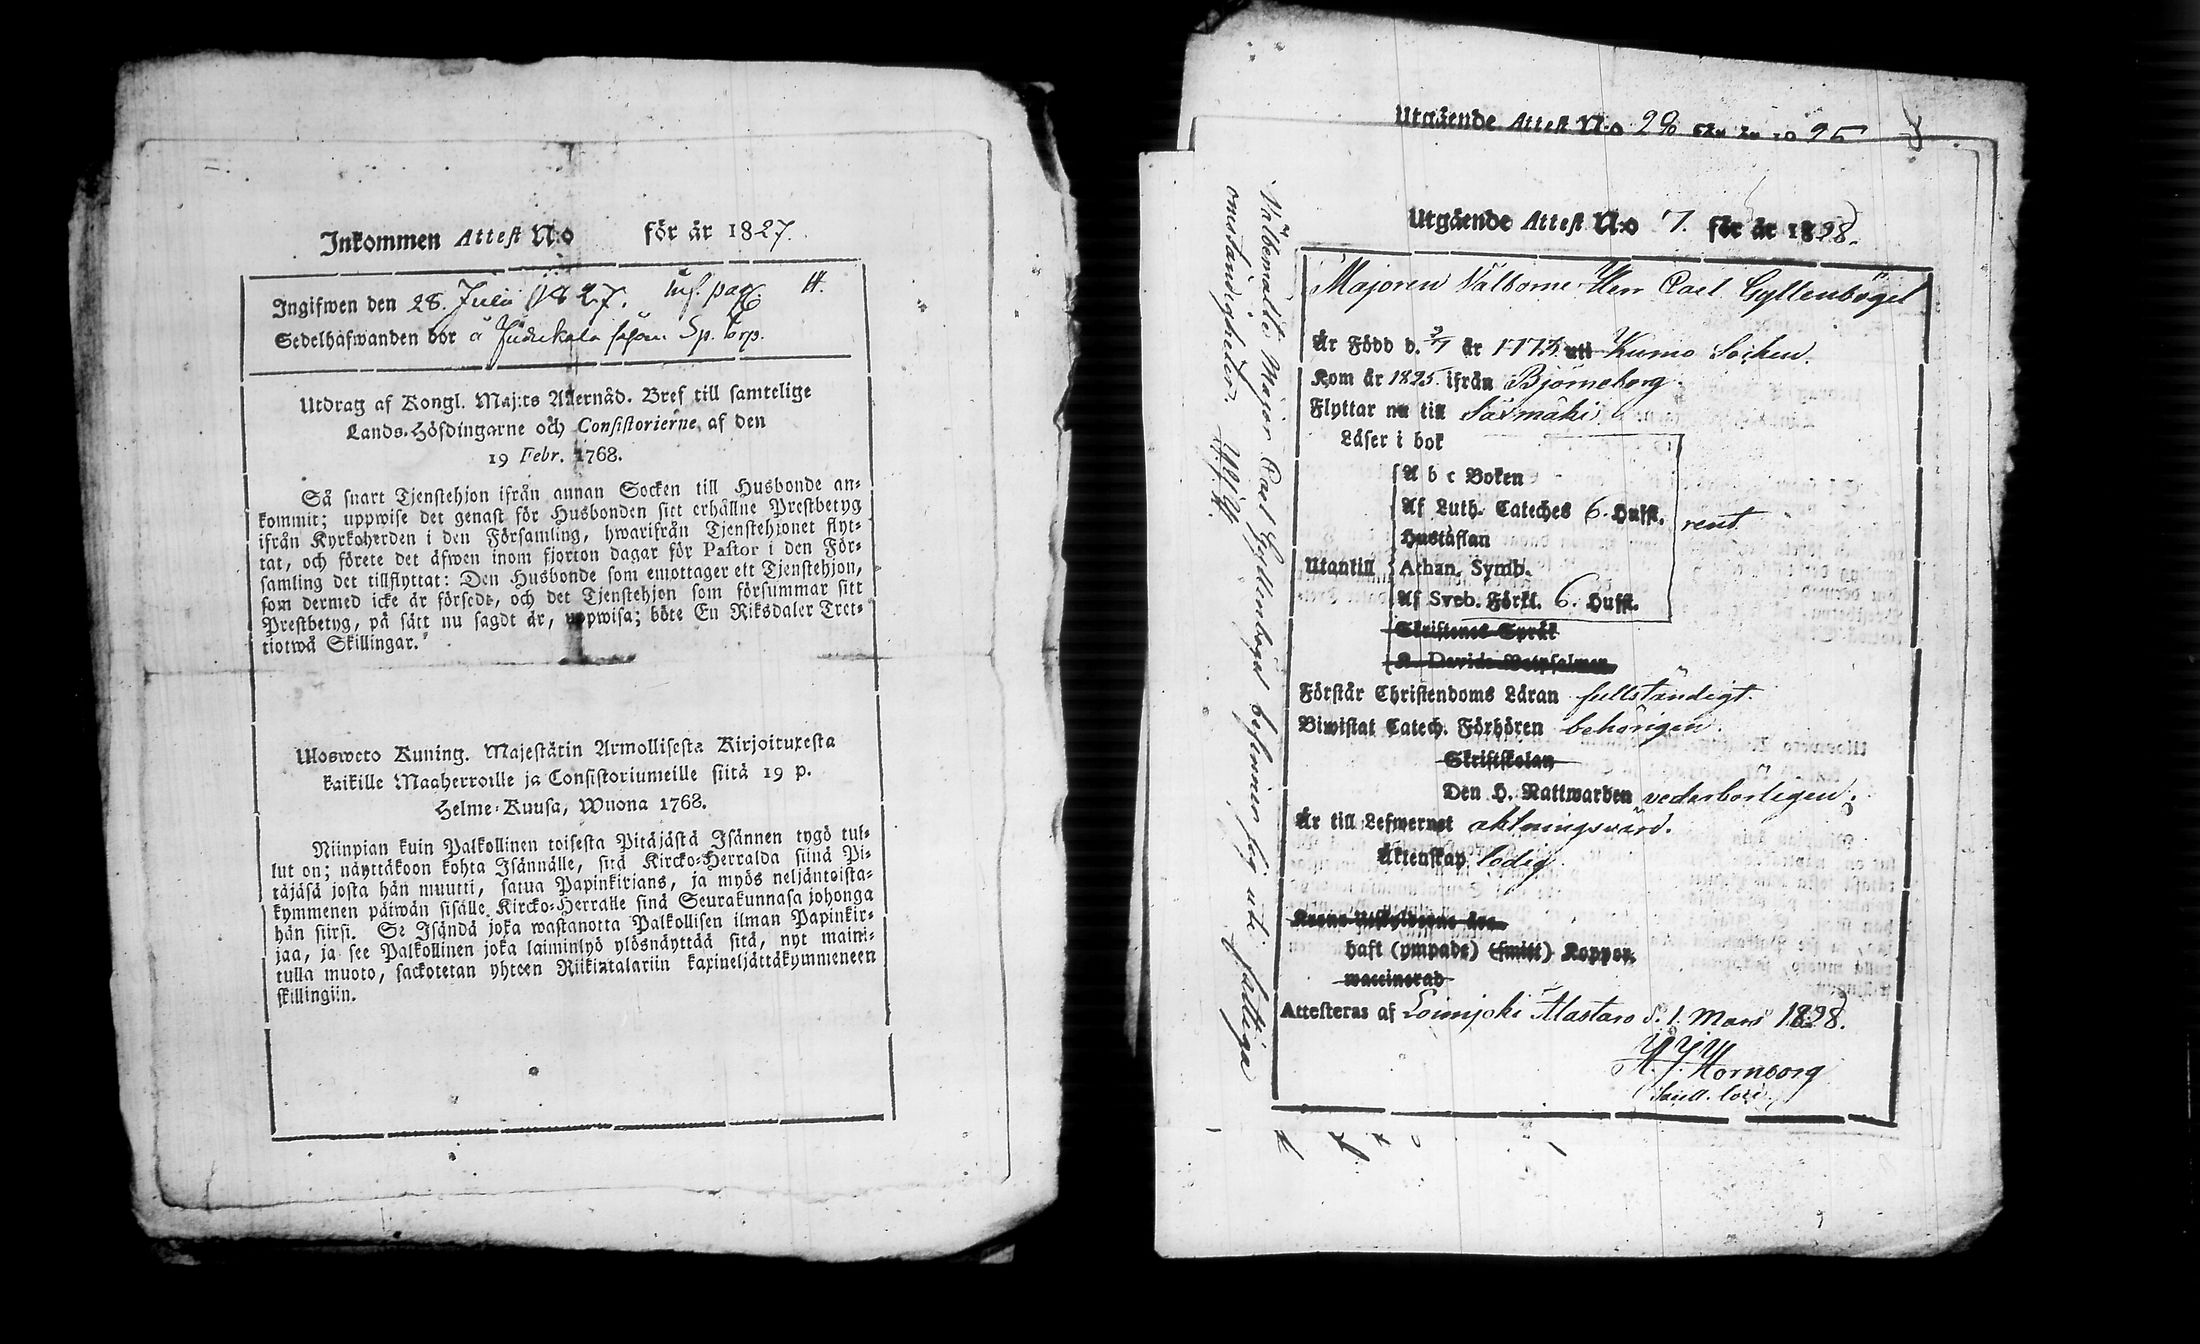 Inkommen Attest N:o för år 1827.
Ingifwen den 28. Julii 1827. Inf. pag. 4.
Sedelhafwanden bor å
Utdrag af Kongl. Maj:ts Allernåd. Bref till samtelige
Lands-Höfdingarne och Consistorierne af den
19 Febr. 1768.
Så snart Tjenstehjon ifrån annan Socken till Husbonde an-
kommit; uppwise det genast för Husbonden sitt erhållne Prestbetyg
ifrån Kyrkoherden i den Församling, hwarifrån Tjenstehjonet flyt-
tat, och förete det äfwen inom fjorton dagar för Pastor i den För-
samling det tillflyttat: Den Husbonde som emottager ett Tjenstehjon,
som dermed icke är försedt, och det Tjenstehjon som försummar sitt
Prestbetyg, på sätt nu sagdt är, uppwisa; böte En Riksdaler Tret-
tiotwå Skillingar.
Ulosweto Kuning. Majestätin Armollisesta Kirjoituxesta
kaikille Maaherroille ja Consistoriumeille siitä 19 p.
Helme-Kuusa, Wuona 1768.
Niinpian kuin Palkollinen toisesta Pitäjästä Isännen tygö tul-
lut on; näyttäkoon kohta Isännälle, sitä Kircko-Herralda siinä Pi-
täjäsä josta hän muutti, satua Papinkirjans, ja myös neljäntoista-
kymmenen päiwän sisälle Kircko-Herralle sinä Seurakunnasa johonga
hän siirsi. Se Isändä joka wastanotta Palkollisen ilman Papinkir-
jaa, ja see Palkollinen joka laiminlyö ylösnäyttää sitä, nyt maini-
tulla muoto, sackotetan yhteen Riikintalariin kaxineljättäkymmeneen
skillingiin.
Utgående Attest N:o 29 för år 1825
Utgående Attest N:o 7. för år 1828.
Majoren Välborne Herr Carl Gyllenbögel
Är Född d. 2/7 år 1773 uti Kumo Socken.
Kom år 1825 ifrån Björneborg.
Flyttar nu till Säxmäki
Läser i bok
A b c Boken
Af Luth. Cateches 6. Hufst. rent
Hustaflan
Utantill Athan. Symb.
Af Sveb. Förkl. 6. Hufst.
Skriftenes Språk
K. Davids Botpsalmer
Förstår Christendoms Läran fullständigt.
Biwistat Catech. Förhören behörigen.
Skriftskolan
Den H. Nattwarden vederbörligen.
Är till Lefwernet aktningsvärd.
Äktenskap ledig.
Krono Utskylderne äro
haft (ympade) (smitt) Koppor.
waccinerad
Attesteras af Loimijoki Alastaro d. 1. Mars 1828.
H. J. Hornborg
Välbemälte Major Carl Gyllenbögel befinner sig uti fattiga
omständigheter. H. J. H.